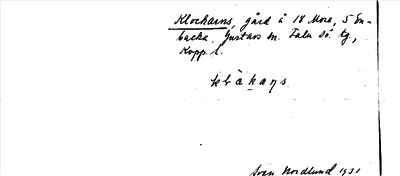 Klockarns, gård å 18 Mora, 5 En-
backa. Gustavs sn. Falu sö. tg,
Kopp. l.
klåkaṇs
Sven Nordlund 1931